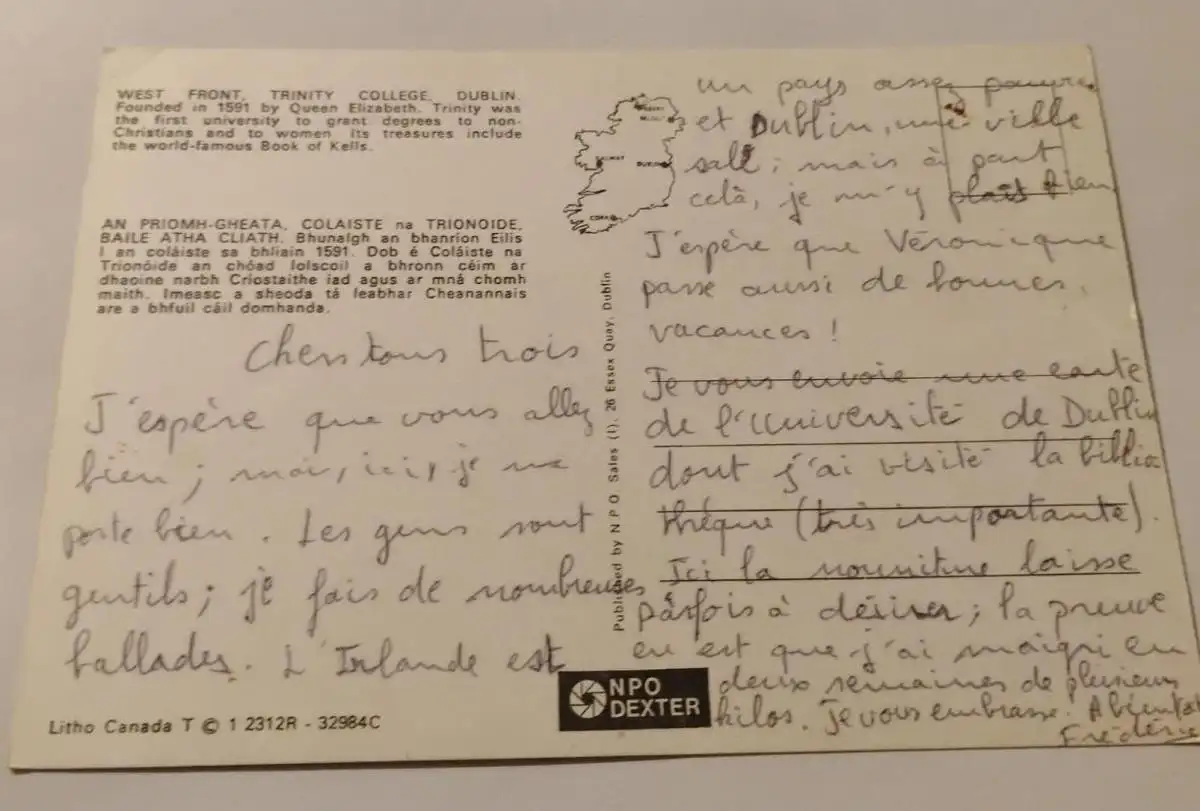 WEST FRONT, TRINITY COLLEGE, DUBLIN.
Founded in 1591 by Queen Elizabeth. Trinity was
the first university to grant degrees to non-
Christians and to women. Its treasures include
the world-famous Book of Kells.
AN PRIOMH-GHEATA, COLAISTE na TRIONOIDE,
BAILE ATHA CLIATH. Bhunaigh an bhanríon Eilis
I an coláiste sa bhliain 1591. Dob é Coláiste na
Tríonóide an chéad Iolscoil a bhronn céim ar
dhaoine narbh Críostaithe iad agus ar mná chomh
maith. Imeasc a sheoda tá leabhar Cheanannais
are a bhfuil cáil domhanda.
Chers tous trois
J'espère que vous allez
bien; moi, ici, je me
porte bien. Les gens sont
gentils; je fais de nombreuses
ballades. L'Irlande est
un pays assez pauvre
et Dublin, une ville
sale; mais à part
celà, je m'y plait bien
J'espère que Véronique
passe aussi de bonnes
vacances!
Je vous envoie une carte
de l'Université de Dublin
dont j'ai visité la biblio
thèque (très importante).
Ici la nourriture laisse
parfois à désirer; la preuve
en est que j'ai maigri en
deux semaines de plusieurs
kilos. Je vous embrasse. A bientôt
Frédéric
Published by N P O Sales (I), 26 Essex Quay, Dublin
DUBLIN
CORK
NPO
DEXTER
Litho Canada T © 1 2312R - 32984C